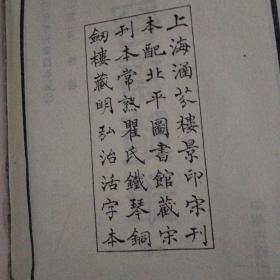 上海涵芬樓景印宋刊
本配北平圖書館藏宋
刊本常熟瞿氏鐵琴銅
劒樓藏明弘治活字本